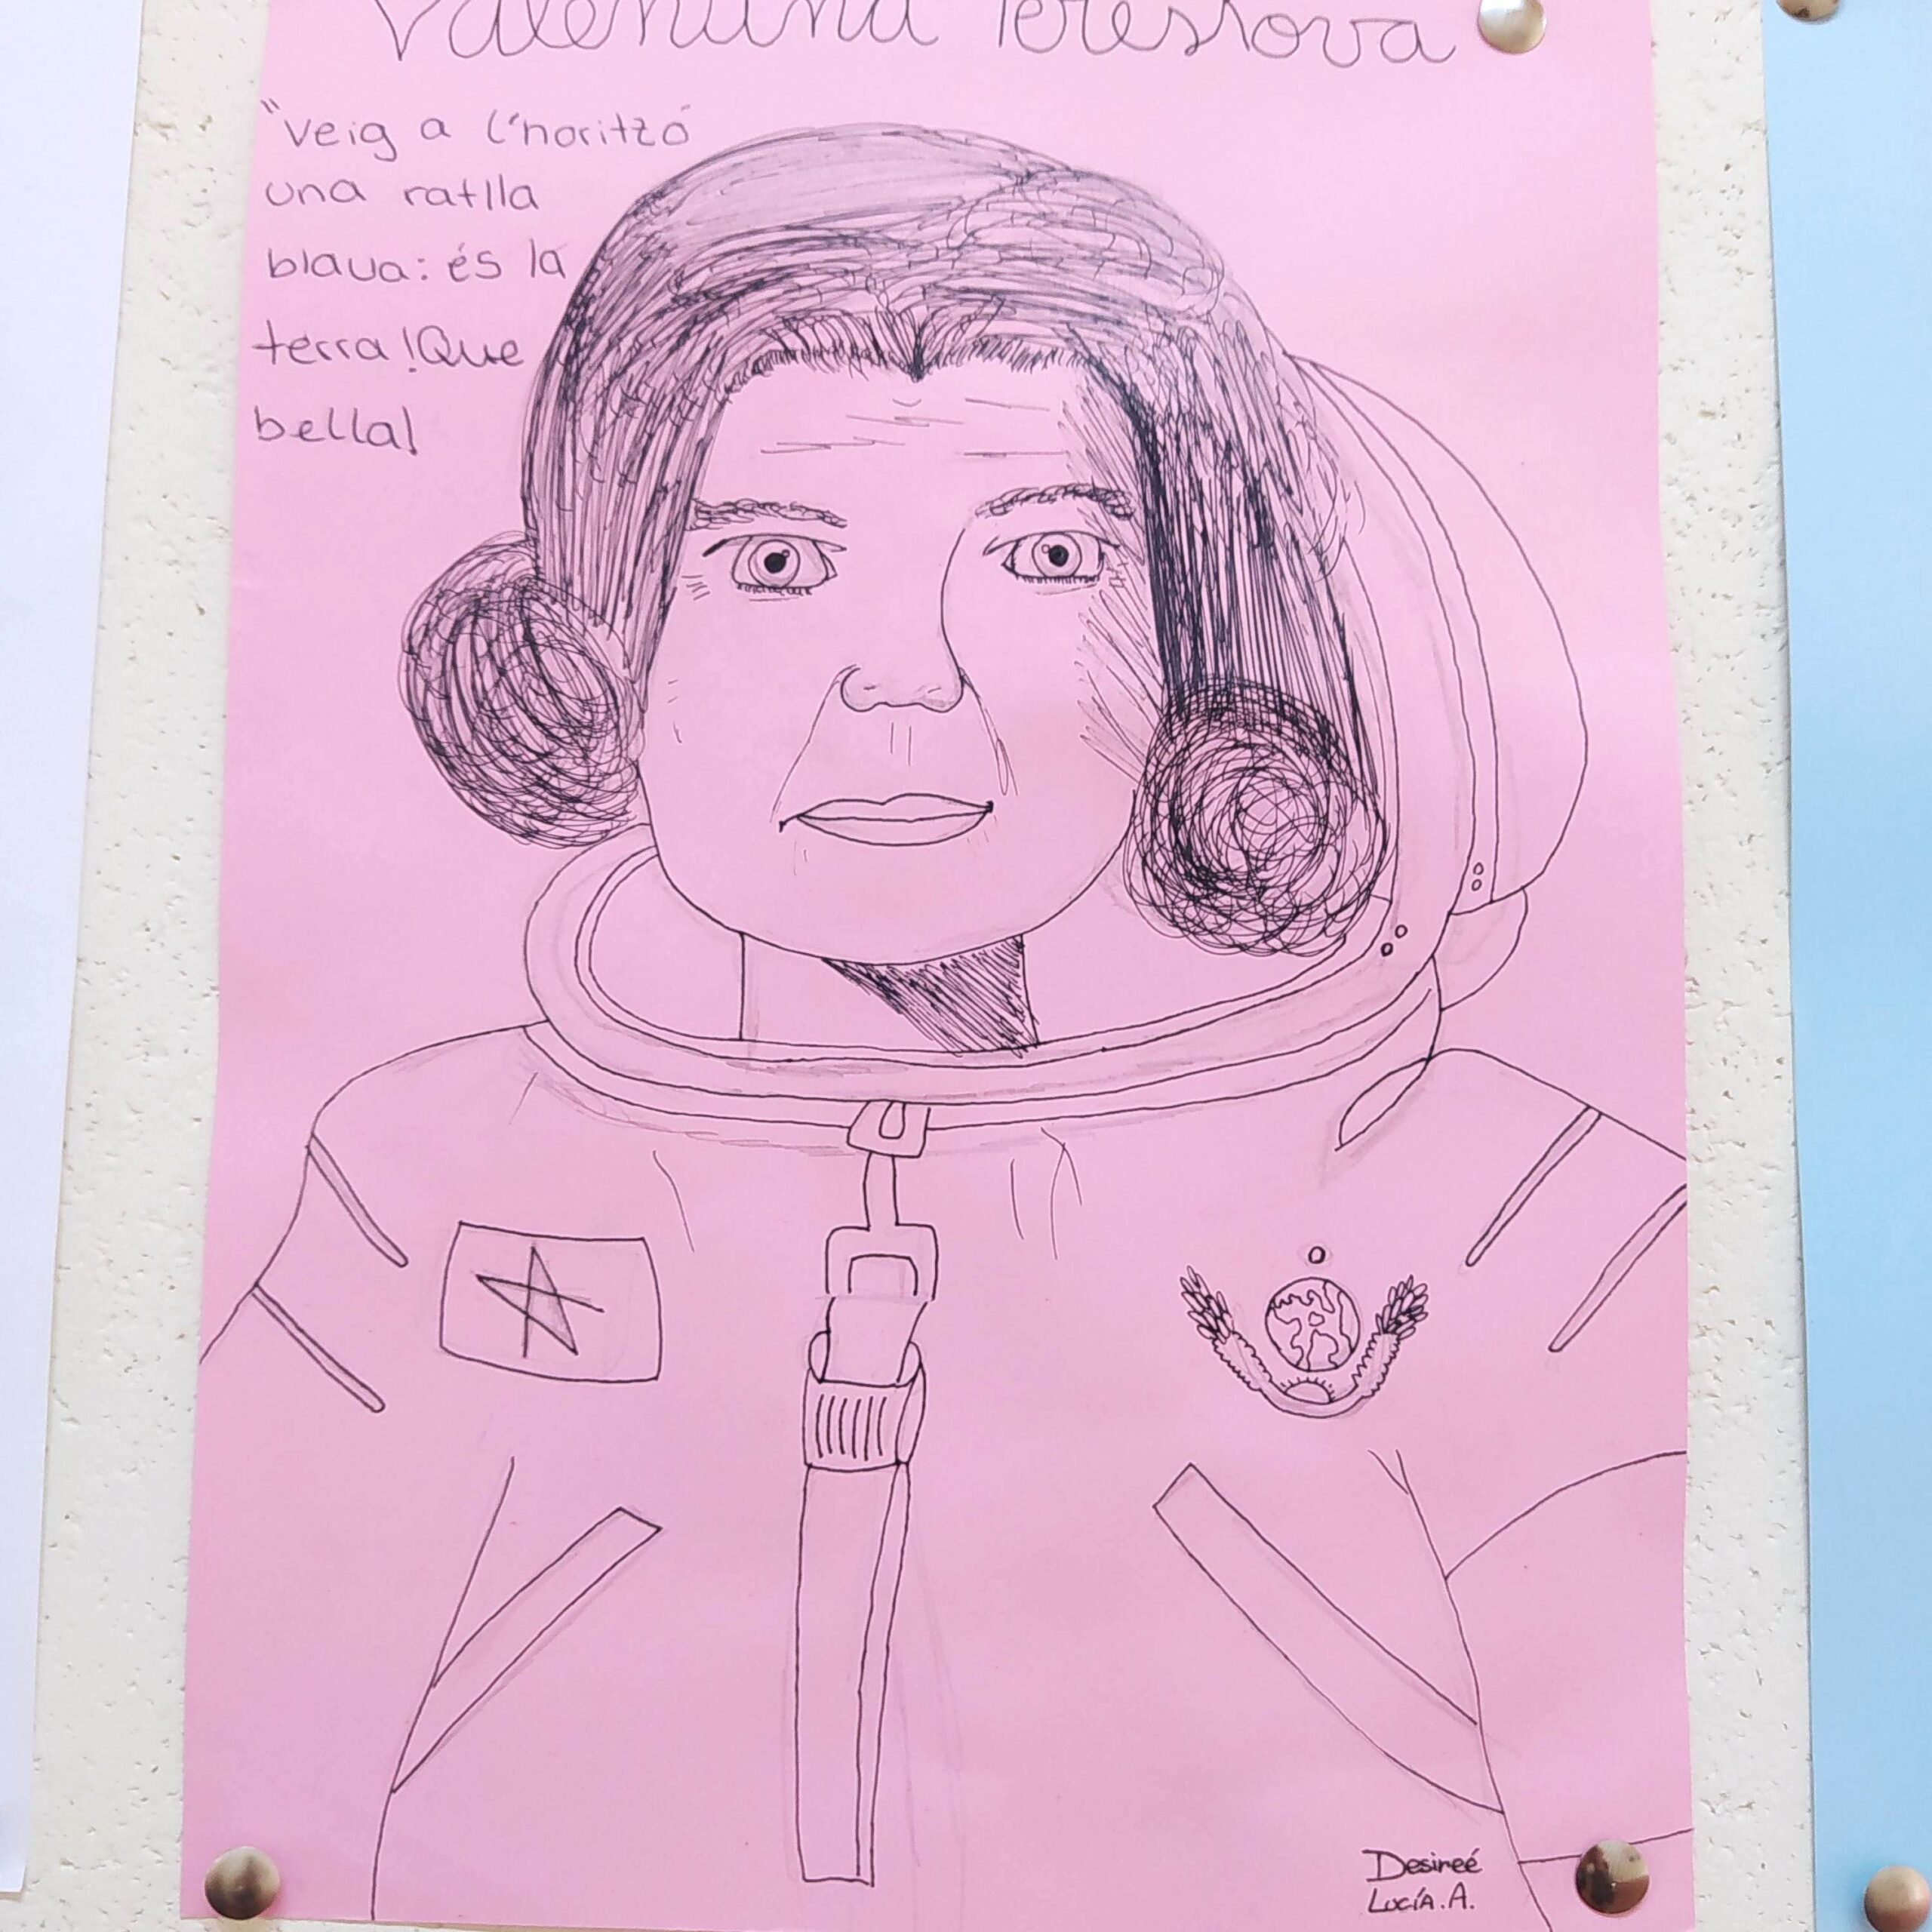 Valentina Tereskova
"Veig a l'horitzó
una ratlla
blava: és la
terra! Que
bella!
Desireé
Lucía.A.